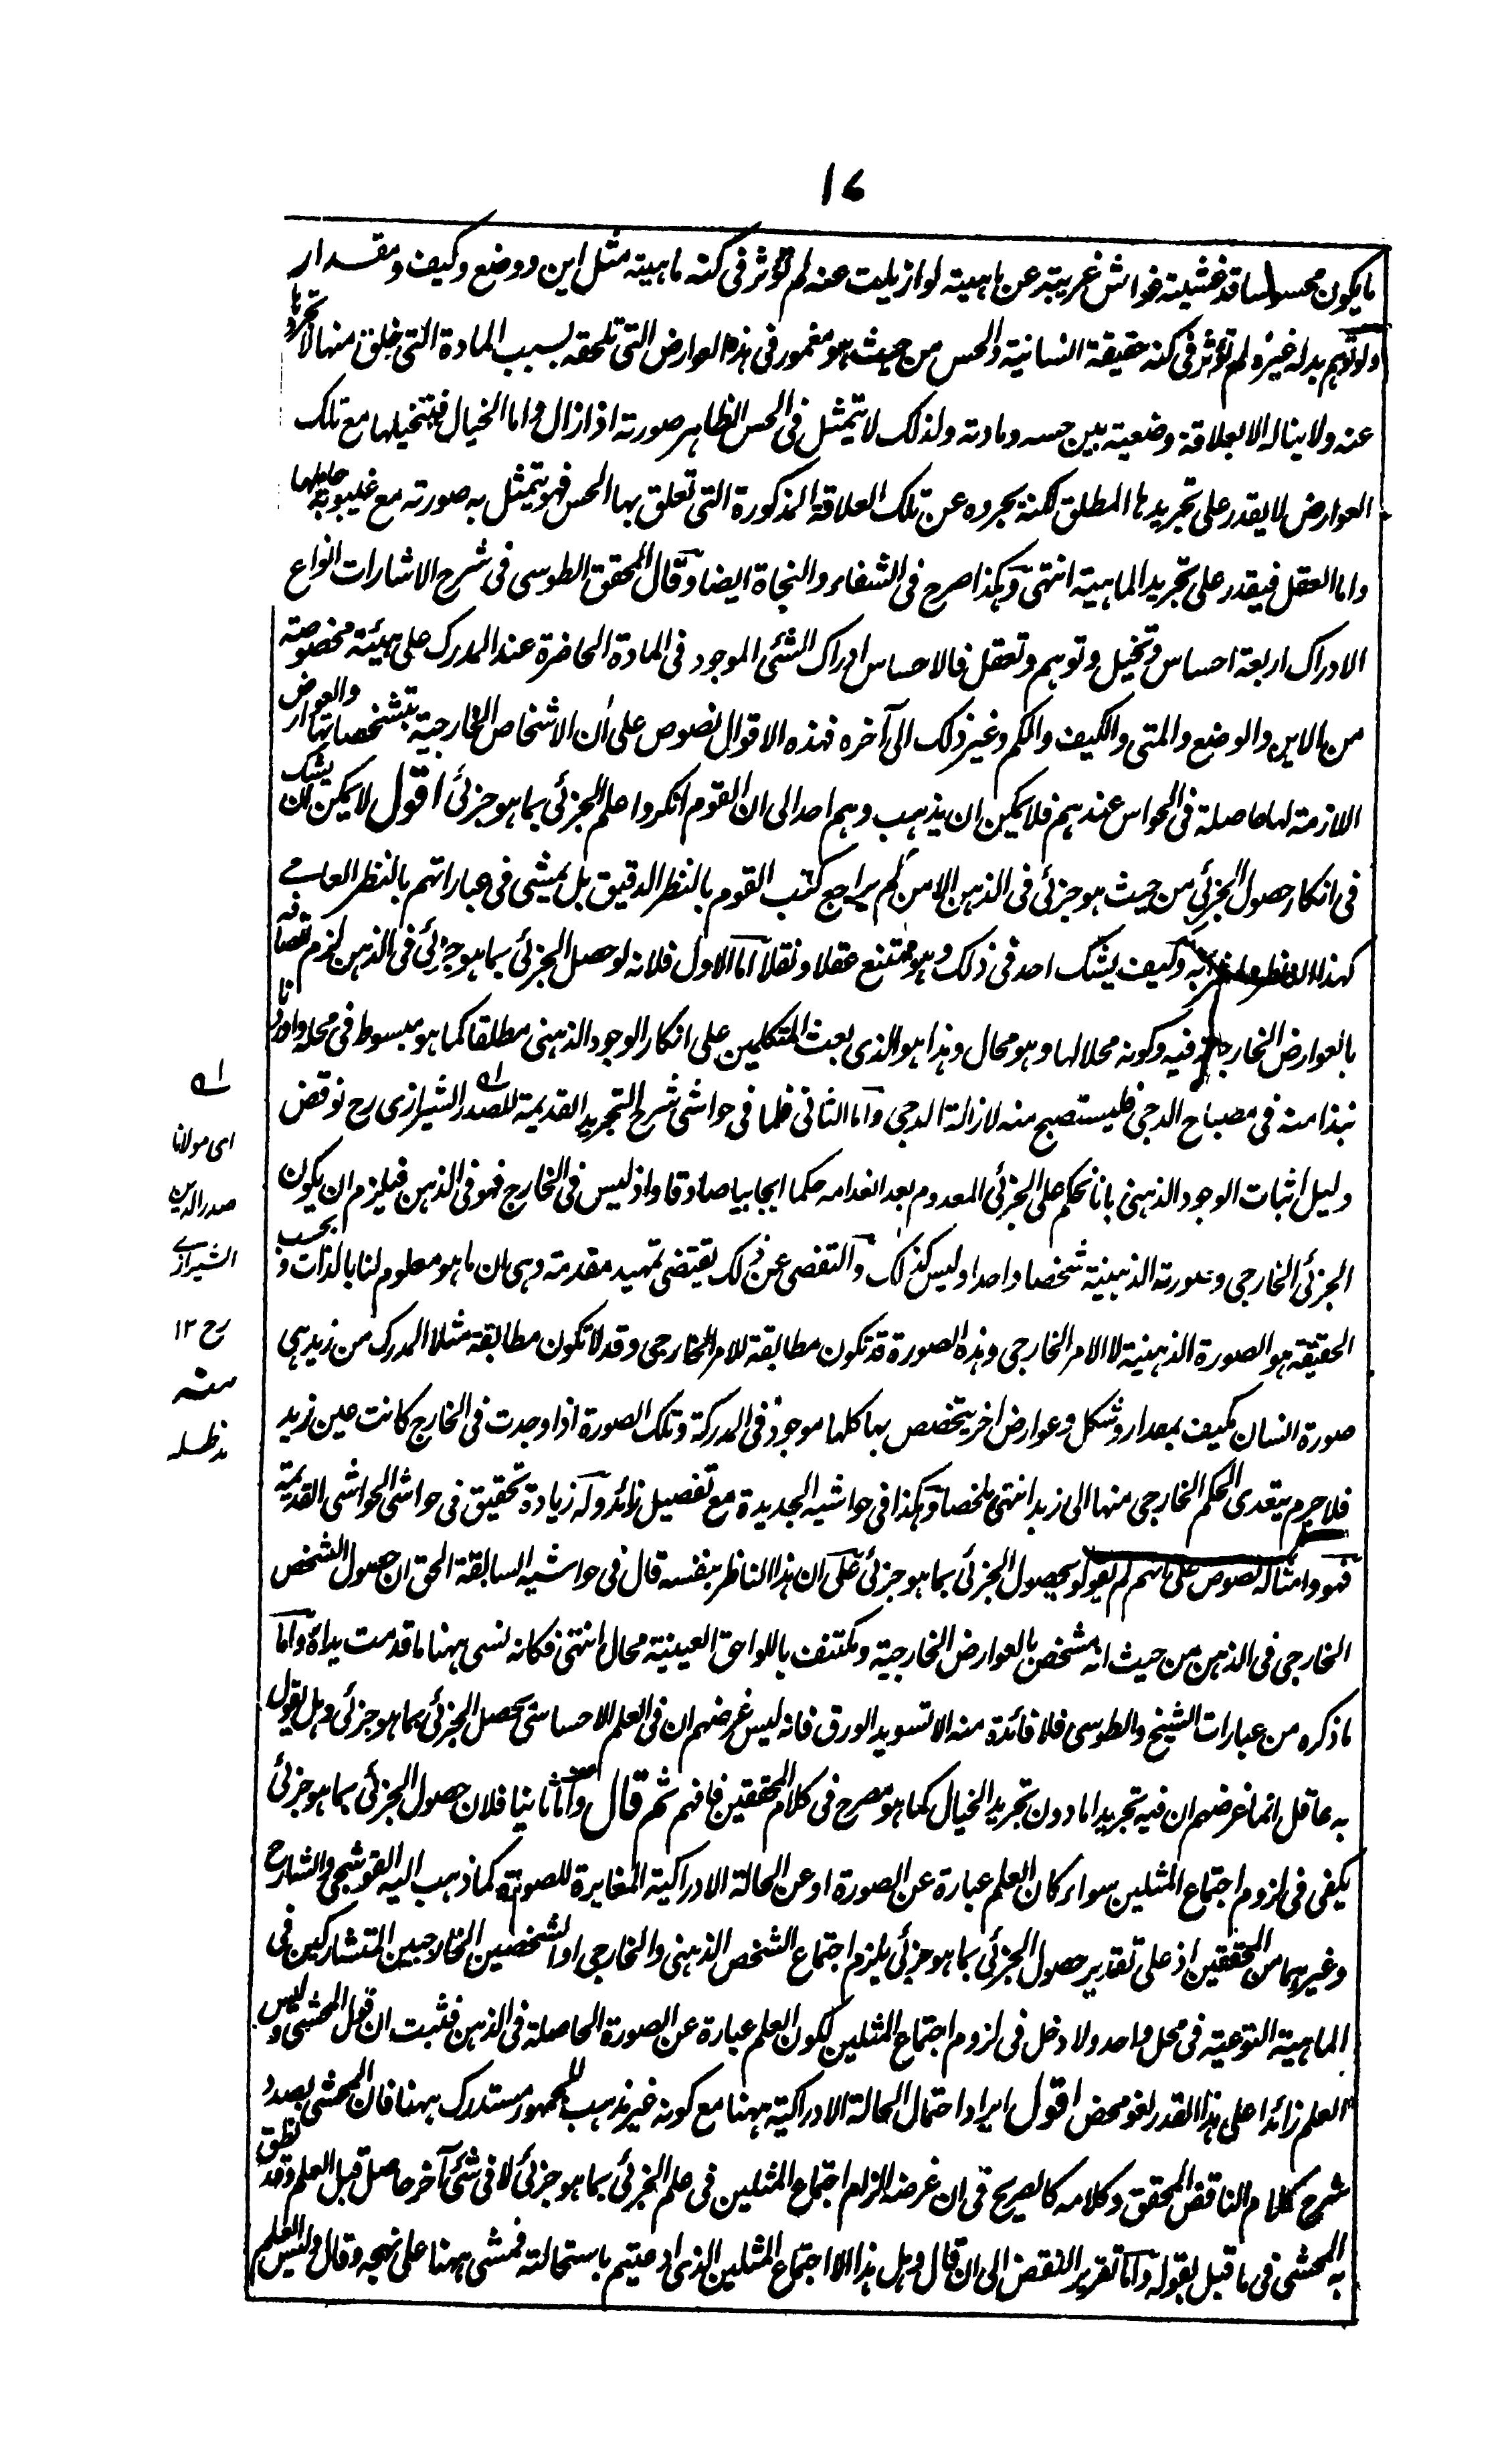 ١٧
ما يكون محسوسا قد غشيته غواش غريبة عن ماهيته لو ازيلت عنه لم تؤثر فى كنه ماهيته مثل اين ووضع وكيف ومقدار
ولو توهم بدله غيره لم تؤثر فى كنه حقيقة انسانية والحس من حيث هو مغمور فى هذه العوارض التى تلحقه بسبب المادة التى خلق منها لا تجرد ها
عنه ولا يناله الا بعلاقة وضعية بين حسه ومادته ولذلك لا يتمثل فى الحس الظاهر صورته اذا زال واما الخيال فيتخيلها مع تلك
العوارض لا يقدر على تجريدها المطلق لكنه يجرده عن تلك العلاقة المذكورة التى تعلق بها الحس فهو يتمثل به صورته مع غيبوبة حاملها
واما العقل فيقدر على تجريد الماهية انتهى وهكذا صرح فى الشفاء والنجاة ايضا وقال المحقق الطوسى فى شرح الاشارات انواع
الادراك اربعة احساس وتخيل وتوهم وتعقل فالاحساس ادراك الشئ الموجود فى المادة الحاضرة عند المدرك على هيئة مخصوصة
من الاين والوضع والمتى والكيف والكم وغير ذلك الى آخره فهذه الاقوال نصوص على ان الاشخاص الخارجية بتشخصاتها والعوارض
الازمة لها حاصلة فى الحواس عندهم فلا يمكن ان يذهب وهم احد الى ان القوم انكروا علم الجزئى بما هو جزئى اقول لا يمكن ان يشك
فى انكار حصول الجزئى من حيث هو جزئى فى الذهن الا من لم يراجع كتب القوم بالنظر الدقيق بل يمشى فى عباراتهم بالنظر العامے
كهذا الناظر وكيف يشك احد فى ذلك وهو ممتنع عقلا ونقلا اما الاول فلانه لو حصل الجزئى بما هو جزئى فى الذهن لزم اتصافه
بالعوارض الخارجية فيه وكونه محلا لها وهو محال وهذا هو الذى بعث المتكلمين على انكار الوجود الذهنى مطلقا كما هو مبسوط فى محله واوردنا
نبذا منه فى مصباح الدجى فليستصبح منه لازالة الدجى واما الثانى فلما فى حواشى شرح التجريد القديمة للصدر الشيرازى رح نوقض
دليل اثبات الوجود الذهنى بانا نحكم على الجزئى المعدوم بعد انعدامه حكما ايجابيا صادقا واذ ليس فى الخارج فهو فى الذهن فيلزم ان يكون
الجزئى الخارجى وصورته الذهنية شخصا واحدا وليس كذلك والتفصى عن ذلك يقتضى تمهيد مقدمة وهى ان ما هو معلوم لنا بالذات وبحسب
الحقيقة هو الصورة الذهنية لا الامر الخارجى وهذه الصورة قد تكون مطابقة للامر الخارجى وقد لا تكون مطابقة مثلا المدرك من زيد هى
صورة انسان مكيف بمقدار وشكل وعوارض اخر يتخصص بها كلها موجود فى المدركة وتلك الصورة اذا وجدت فى الخارج كانت عين زيد
فلا جرم يتعدى الحكم الخارجى منها الى زيد انتهى ملخصا وهكذا فى حواشيه الجديدة مع تفصيل زائد وله زيادة تحقيق فى حواشى الحواشى القديمة
فهو وامثاله نصوص على انهم لم يقولوا بحصول الجزئى بما هو جزئى على ان هذا الناظر بنفسه قال فى حواشيه السابقة الحق ان حصول الشخص
الخارجى فى الذهن من حيث انه مشخص بالعوارض الخارجية ومكتنف باللواحق العينية محال انتهى فكانه نسى ههنا ما قدمت يداه واما
ما ذكره من عبارات الشيخ والطوسى فلا فائدة منه الا تسويد الورق فانه ليس غرضهم ان فى العلم الاحساسى يحصل الجزئى بما هو جزئى وهل يقول
به عاقل انما غرضهم ان فيه تجريدا ما دون تجريد الخيال كما هو مصرح فى كلام المحققين فافهم ثم قال واما ثانيا فلان حصول الجزئى بما هو جزئى
يكفى فى لزوم اجتماع المثلين سواء كان العلم عبارة عن الصورة او عن الحالة الادراكية المغايرة للصورة كما ذهب اليه القوشجى والشارح
وغيرهما من المحققين اذ على تقدير حصول الجزئى بما هو جزئى يلزم اجتماع الشخص الذهنى والخارجى او الشخصين الخارجيين المتشاركين فى
الماهية النوعية فى محل واحد ولا دخل فى لزوم اجتماع المثلين لكون العلم عبارة عن الصورة الحاصلة فى الذهن فثبت ان قول المحشى وليس
العلم زائدا على هذا القدر لغو محض اقول ايراد احتمال الحالة الادراكية ههنا مع كونه غير مذهب الجمهور مستدرك ههنا فان المحشى بصدد
شرح كلام الناقض المحقق وكلامه كالصريح فى ان غرضه الزام اجتماع المثلين فى علم الجزئى بما هو جزئى لا فى شئ آخر حاصل قبل العلم وقد نطق
به المحشى فى ما قبل بقوله واما تقرير النقض الى ان قال وهل هذا الا اجتماع المثلين الذى ادعيتم باستحالته فمشى ههنا على نهجه وقال وليس العلم
اے
اى مولانا
صدر الدين
الشيرازے
رح ١٢
منه
مد ظله